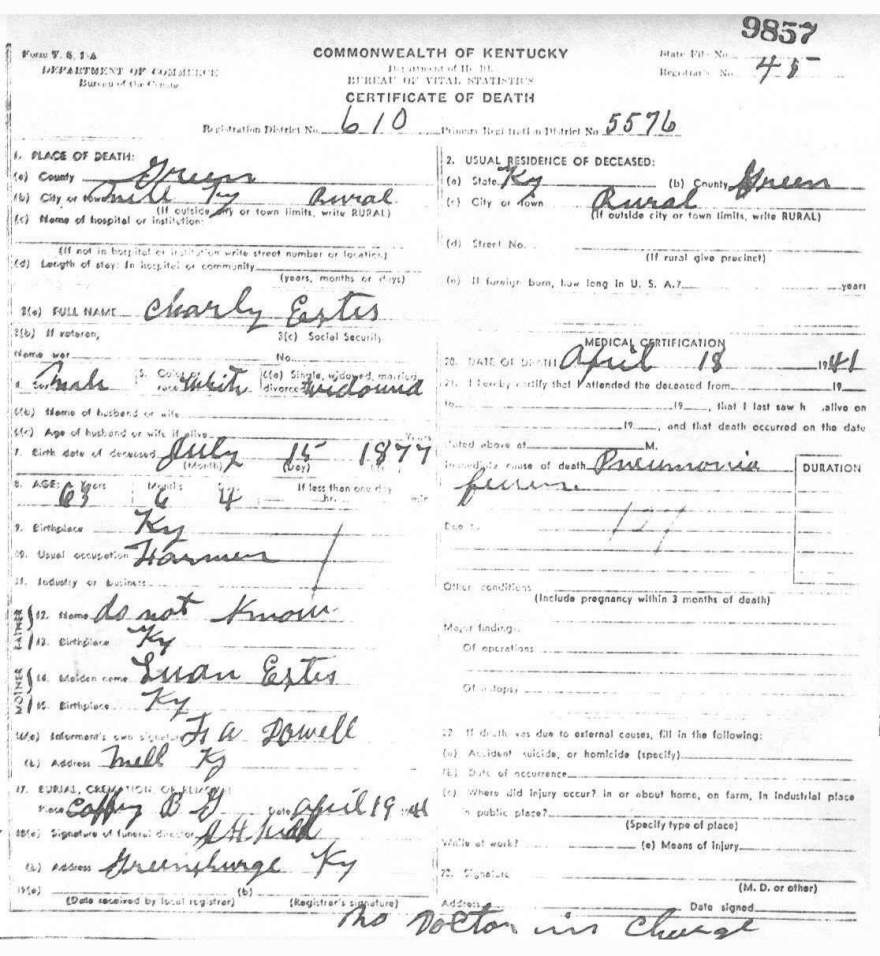 9857
Form V. S. 1-A
DEPARTMENT OF COMMERCE
Bureau of the Census
COMMONWEALTH OF KENTUCKY
Department of Health
BUREAU OF VITAL STATISTICS
CERTIFICATE OF DEATH
State File No.
Registrar's No. 45
Registration District No. 610 Primary Registration District No. 5576
1. PLACE OF DEATH:
(a) County Green
(b) City or town Mell Ky Rural
(If outside city or town limits, write RURAL)
(c) Name of hospital or institution:
(If not in hospital or institution write street number or location)
(d) Length of stay: In hospital or community
(years, months or days)
3(a) FULL NAME Charly Estes
3(b) If veteran,
3(c) Social Security
Name war
No.
4. Sex Male 5. Color or race White 6(a) Single, widowed, married, divorced Widound
6(b) Name of husband or wife
6(c) Age of husband or wife if alive Years
7. Birth date of deceased July 15 1877
(Month) (Day)
8. AGE: Years Months Days If less than one day
63 6 4 hr. min
9. Birthplace Ky
10. Usual occupation Farmer
11. Industry or business
FATHER
12. Name do not Know
13. Birthplace Ky
MOTHER
14. Maiden name Luan Estes
15. Birthplace Ky
16(a) Informant's own signature Powell
(b) Address Mell Ky
17. BURIAL, CREMATION, OR REMOVAL
Place B G Date April 19 41
18(a) Signature of funeral director
(b) Address Greensburge Ky
19(a) (b)
(Date received by local registrar) (Registrar's signature)
2. USUAL RESIDENCE OF DECEASED:
(a) State Ky (b) County Green
(c) City or town Rural
(If outside city or town limits, write RURAL)
(d) Street No.
(If rural give precinct)
(e) If foreign born, how long in U. S. A.? years
MEDICAL CERTIFICATION
20. DATE OF DEATH April 18 1941
21. I hereby certify that I attended the deceased from 19
to 19, that I last saw h alive on
19, and that death occurred on the date
stated above at M.
Immediate cause of death Pneumonia
DURATION
Due to
Other conditions
(Include pregnancy within 3 months of death)
Major findings:
Of operations
Of autopsy
22. If death was due to external causes, fill in the following:
(a) Accident, suicide, or homicide (specify)
(b) Date of occurrence
(c) Where did injury occur? In or about home, on farm, in industrial place
in public place?
(Specify type of place)
While at work? (e) Means of injury
23. Signature
(M. D. or other)
Address Date signed
No Doctor in Charge